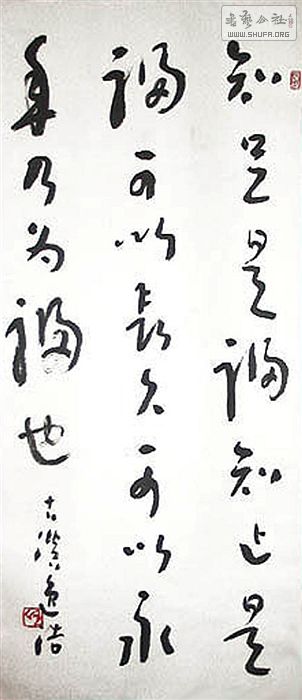 书艺公社
WWW.SHUFA.ORG
知足是福知止是
福可以長久可以永
年乃為福也